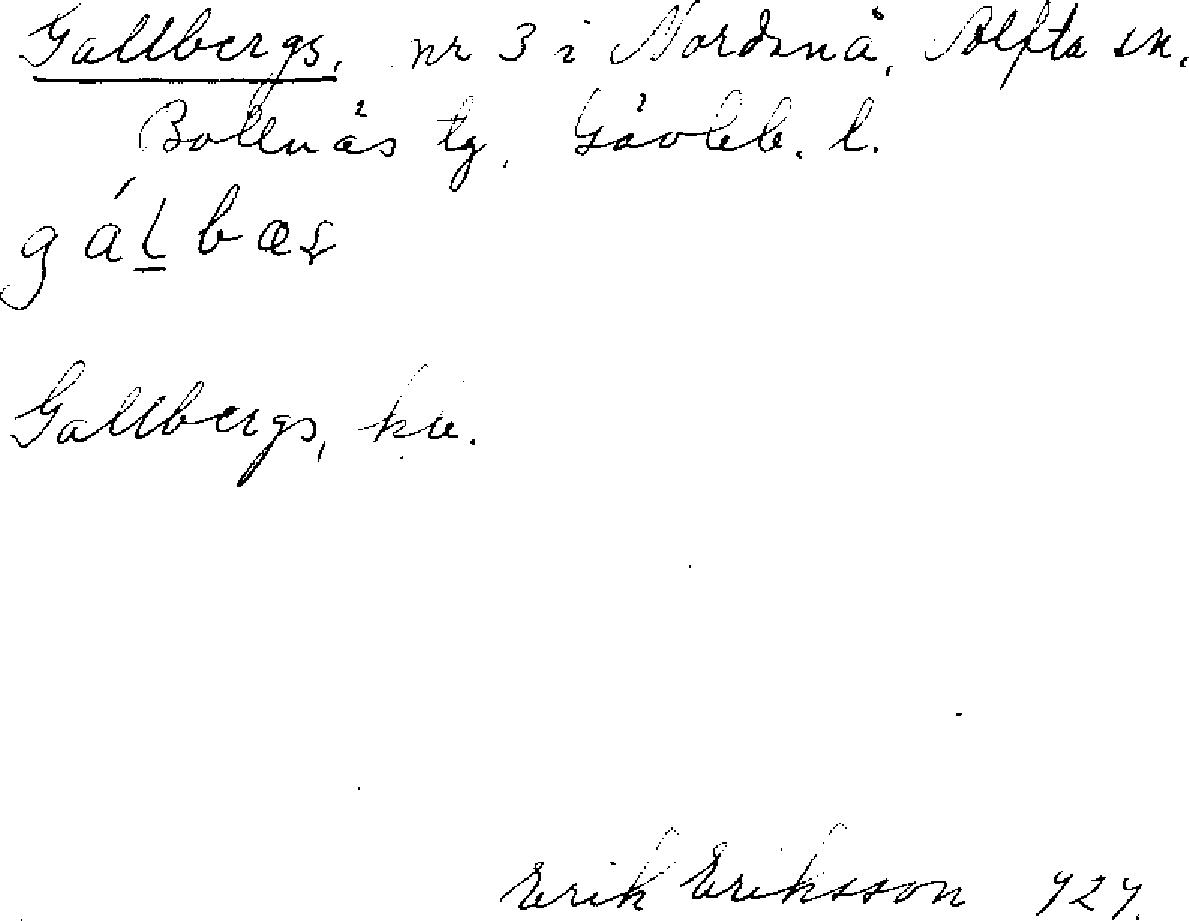 Gallbergs, nr 3 i Nordanå, Alfta sn.
Bollnäs tg, Gävleb. l.
gálbæs
Gallbergs, kv.
Erik Eriksson 1727.